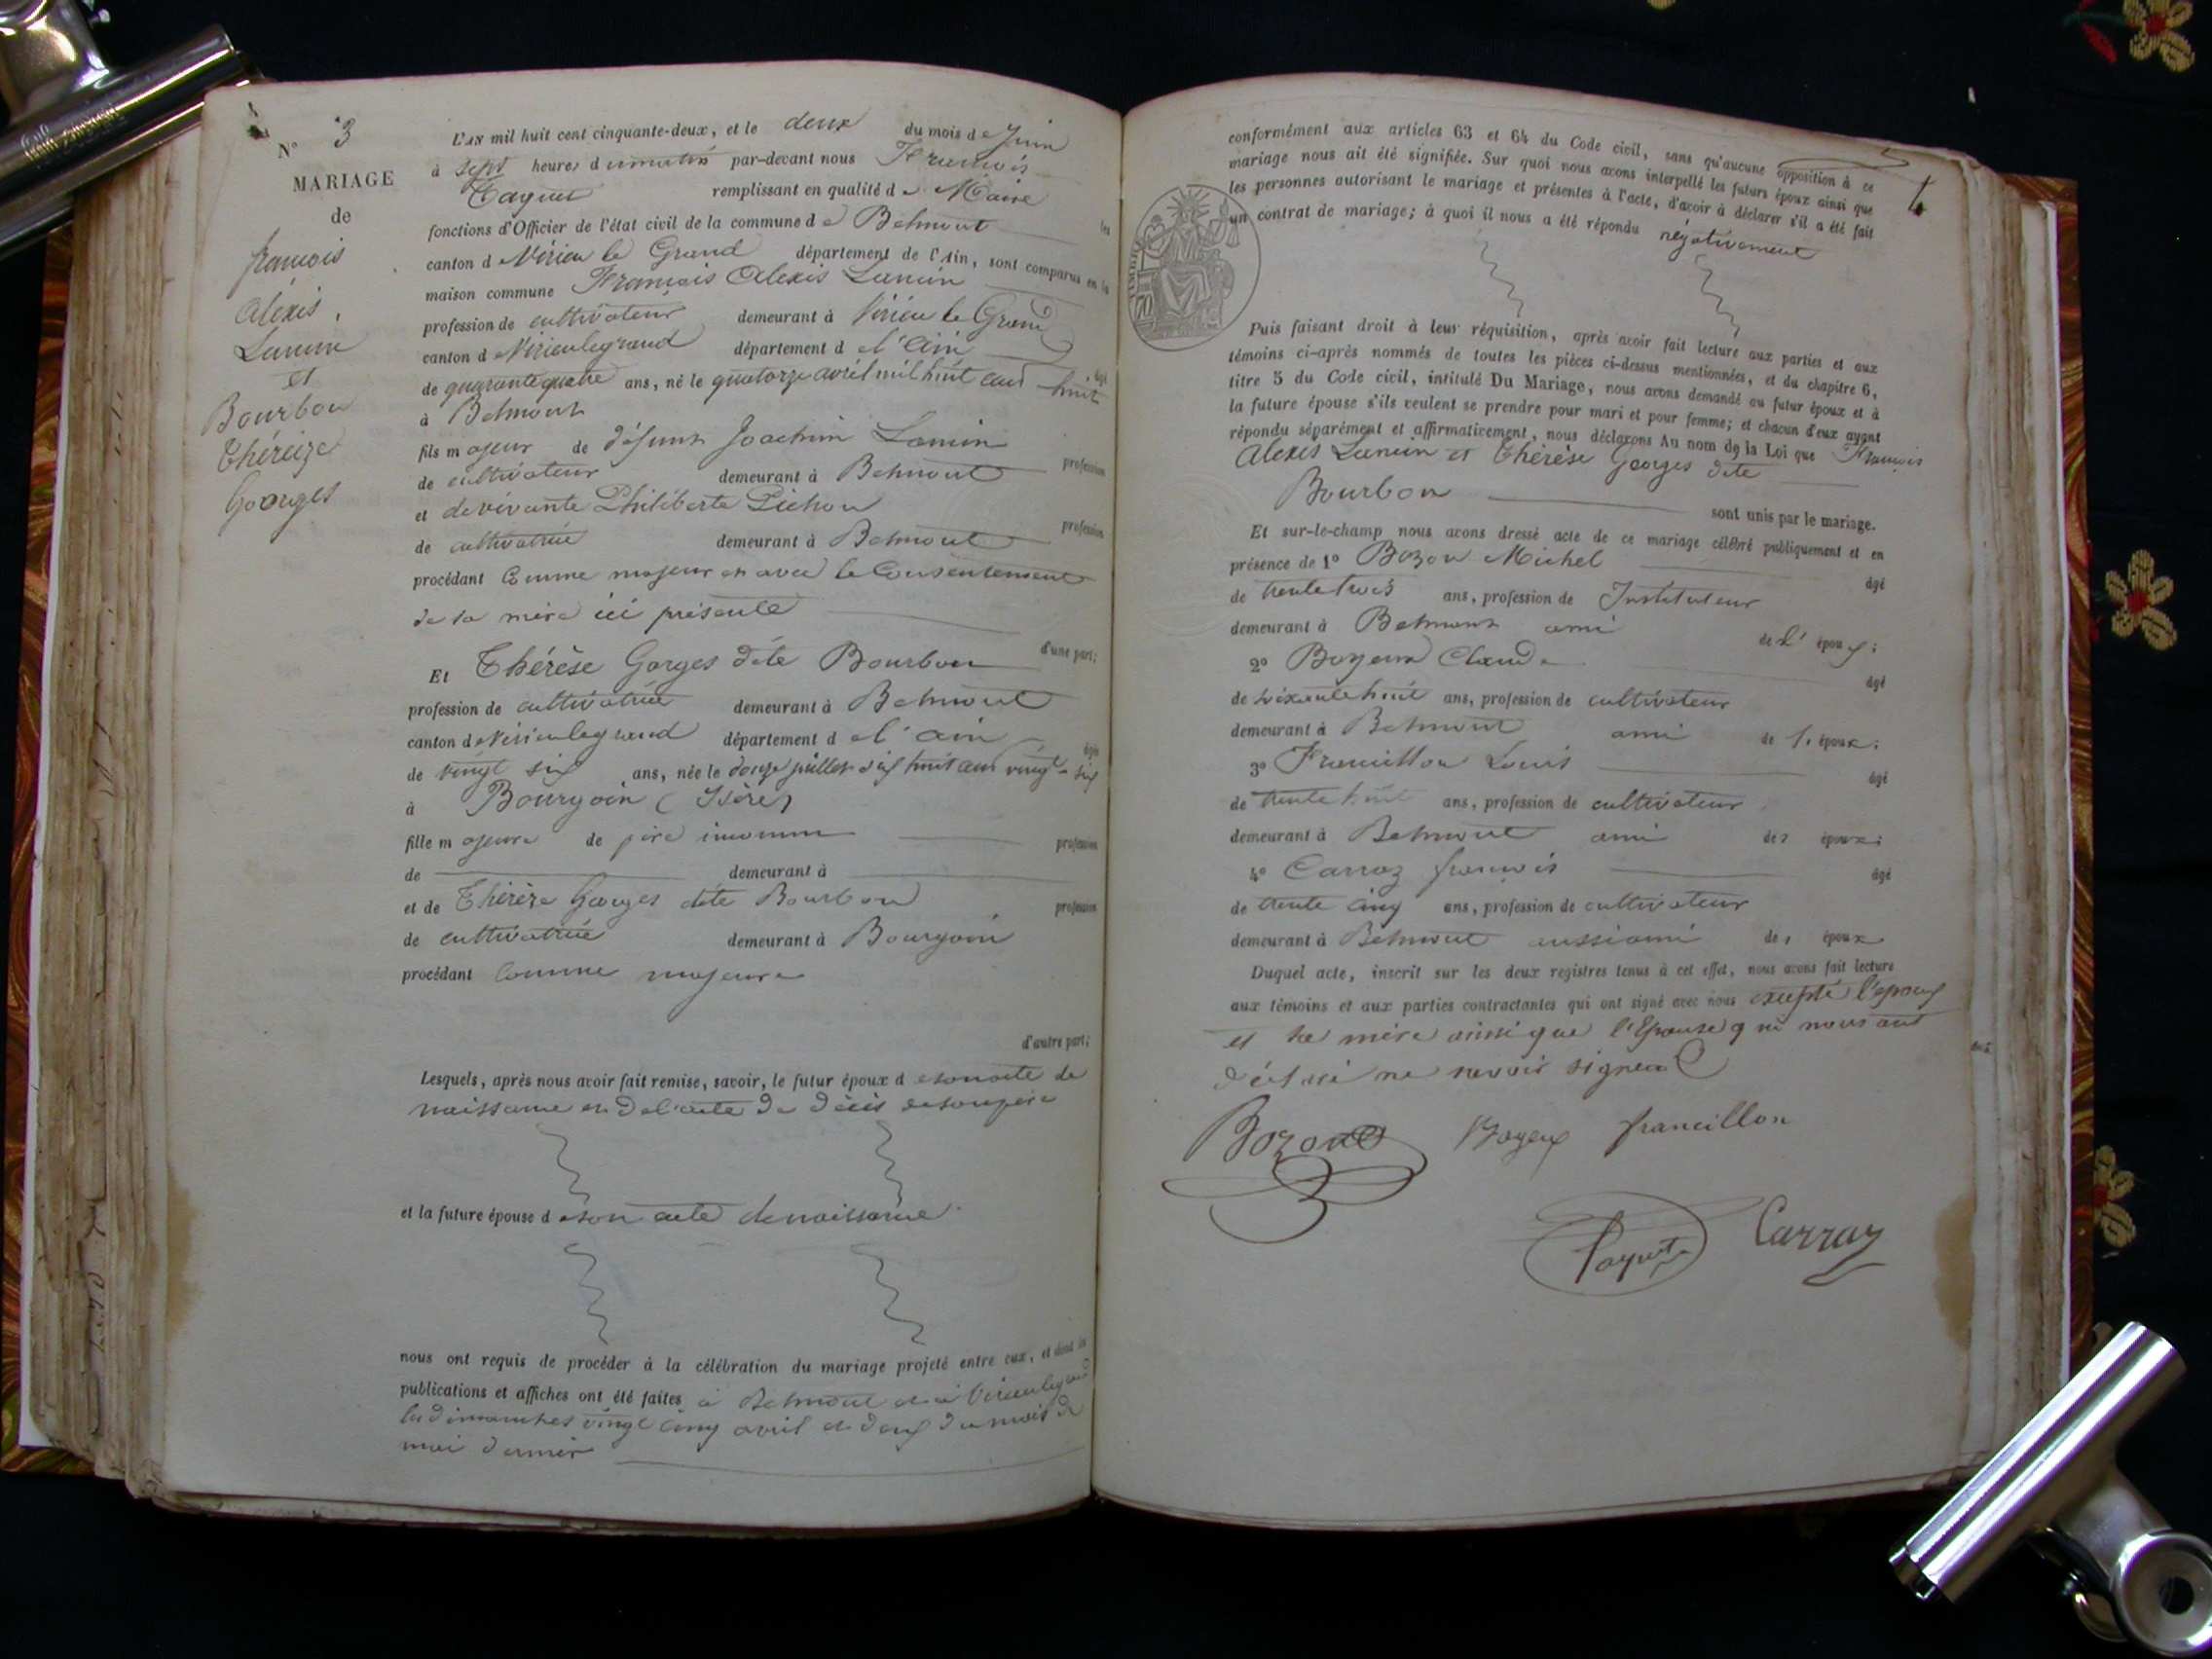 N° 3
MARIAGE
de
françois
alexis
Lanin
et
Bourbon
Théreize
Georges
L'AN mil huit cent cinquante-deux, et le deux du mois de Juin
à sept heures du matin par-devant nous François
remplissant en qualité de Maire les
fonctions d'Officier de l'état civil de la commune de Belmont
canton de Virieu le Grand département de l'Ain, sont comparus en la
maison commune François Alexis Lanin
profession de cultivateur demeurant à Virieu le Grand
canton de Virieulegrand département de l'ain âgé
de quarantequatre ans, né le quatorze avril mil huit cent huit
à Belmont
fils majeur de défunt Joachim Lanin profession
de cultivateur demeurant à Belmont
et de vivante Philiberte Pichon profession
de cultivatrice demeurant à Belmont
procédant comme majeur et avec le Consentement
de sa mère ici présente
d'une part;
Et Thérèse Gorges dite Bourbon
profession de cultivatrice demeurant à Belmont
canton de Virieulegrand département de l'ain âgée
de vingt six ans, née le douze juillet dix huit cent vingt-six
à Bourgoin (Isère)
fille majeure de père inconnu profession
de demeurant à
et de Thérèze Georges dite Bourbon profession
de cultivatrice demeurant à Bourgoin
procédant Comme majeure
d'autre part;
Lesquels, après nous avoir fait remise, savoir, le futur époux de son acte de
naissance et de l'acte de décès de son père
et la future épouse de son acte de naissance
nous ont requis de procéder à la célébration du mariage projeté entre eux, et dont les
publications et affiches ont été faites à Belmont et à Virieulegrand
les dimanches vingt cinq avril et deux du mois de
mai dernier
conformément aux articles 63 et 64 du Code civil, sans qu'aucune opposition à ce
mariage nous ait été signifiée. Sur quoi nous avons interpellé les futurs époux ainsi que
les personnes autorisant le mariage et présentes à l'acte, d'avoir à déclarer s'il a été fait
un contrat de mariage; à quoi il nous a été répondu négativement
Puis faisant droit à leur réquisition, après avoir fait lecture aux parties et aux
témoins ci-après nommés de toutes les pièces ci-dessus mentionnées, et du chapitre 6,
titre 5 du Code civil, intitulé Du Mariage, nous avons demandé au futur époux et à
la future épouse s'ils veulent se prendre pour mari et pour femme; et chacun d'eux ayant
répondu séparément et affirmativement, nous déclarons Au nom de la Loi que François
Alexis Lanin et Thérèse Georges dite
Bourbon sont unis par le mariage.
Et sur-le-champ nous avons dressé acte de ce mariage célébré publiquement et en
présence de 1° Bozon Michel âgé
de trente trois ans, profession de Instituteur
demeurant à Belmont ami de l'époux;
2° Boyeux Claude âgé
de soixante huit ans, profession de cultivateur
demeurant à Belmont ami de l. époux;
3° Francillon Louis âgé
de trente huit ans, profession de cultivateur
demeurant à Belmont ami des époux;
4° Carraz françois âgé
de trente cinq ans, profession de cultivateur
demeurant à Belmont aussi ami des époux
Duquel acte, inscrit sur les deux registres tenus à cet effet, nous avons fait lecture
aux témoins et aux parties contractantes qui ont signé avec nous excepté l'époux
et sa mère ainsi que l'Epouse qui nous ont
déclaré ne savoir signer
Bozon Boyeux francillon
Carraz